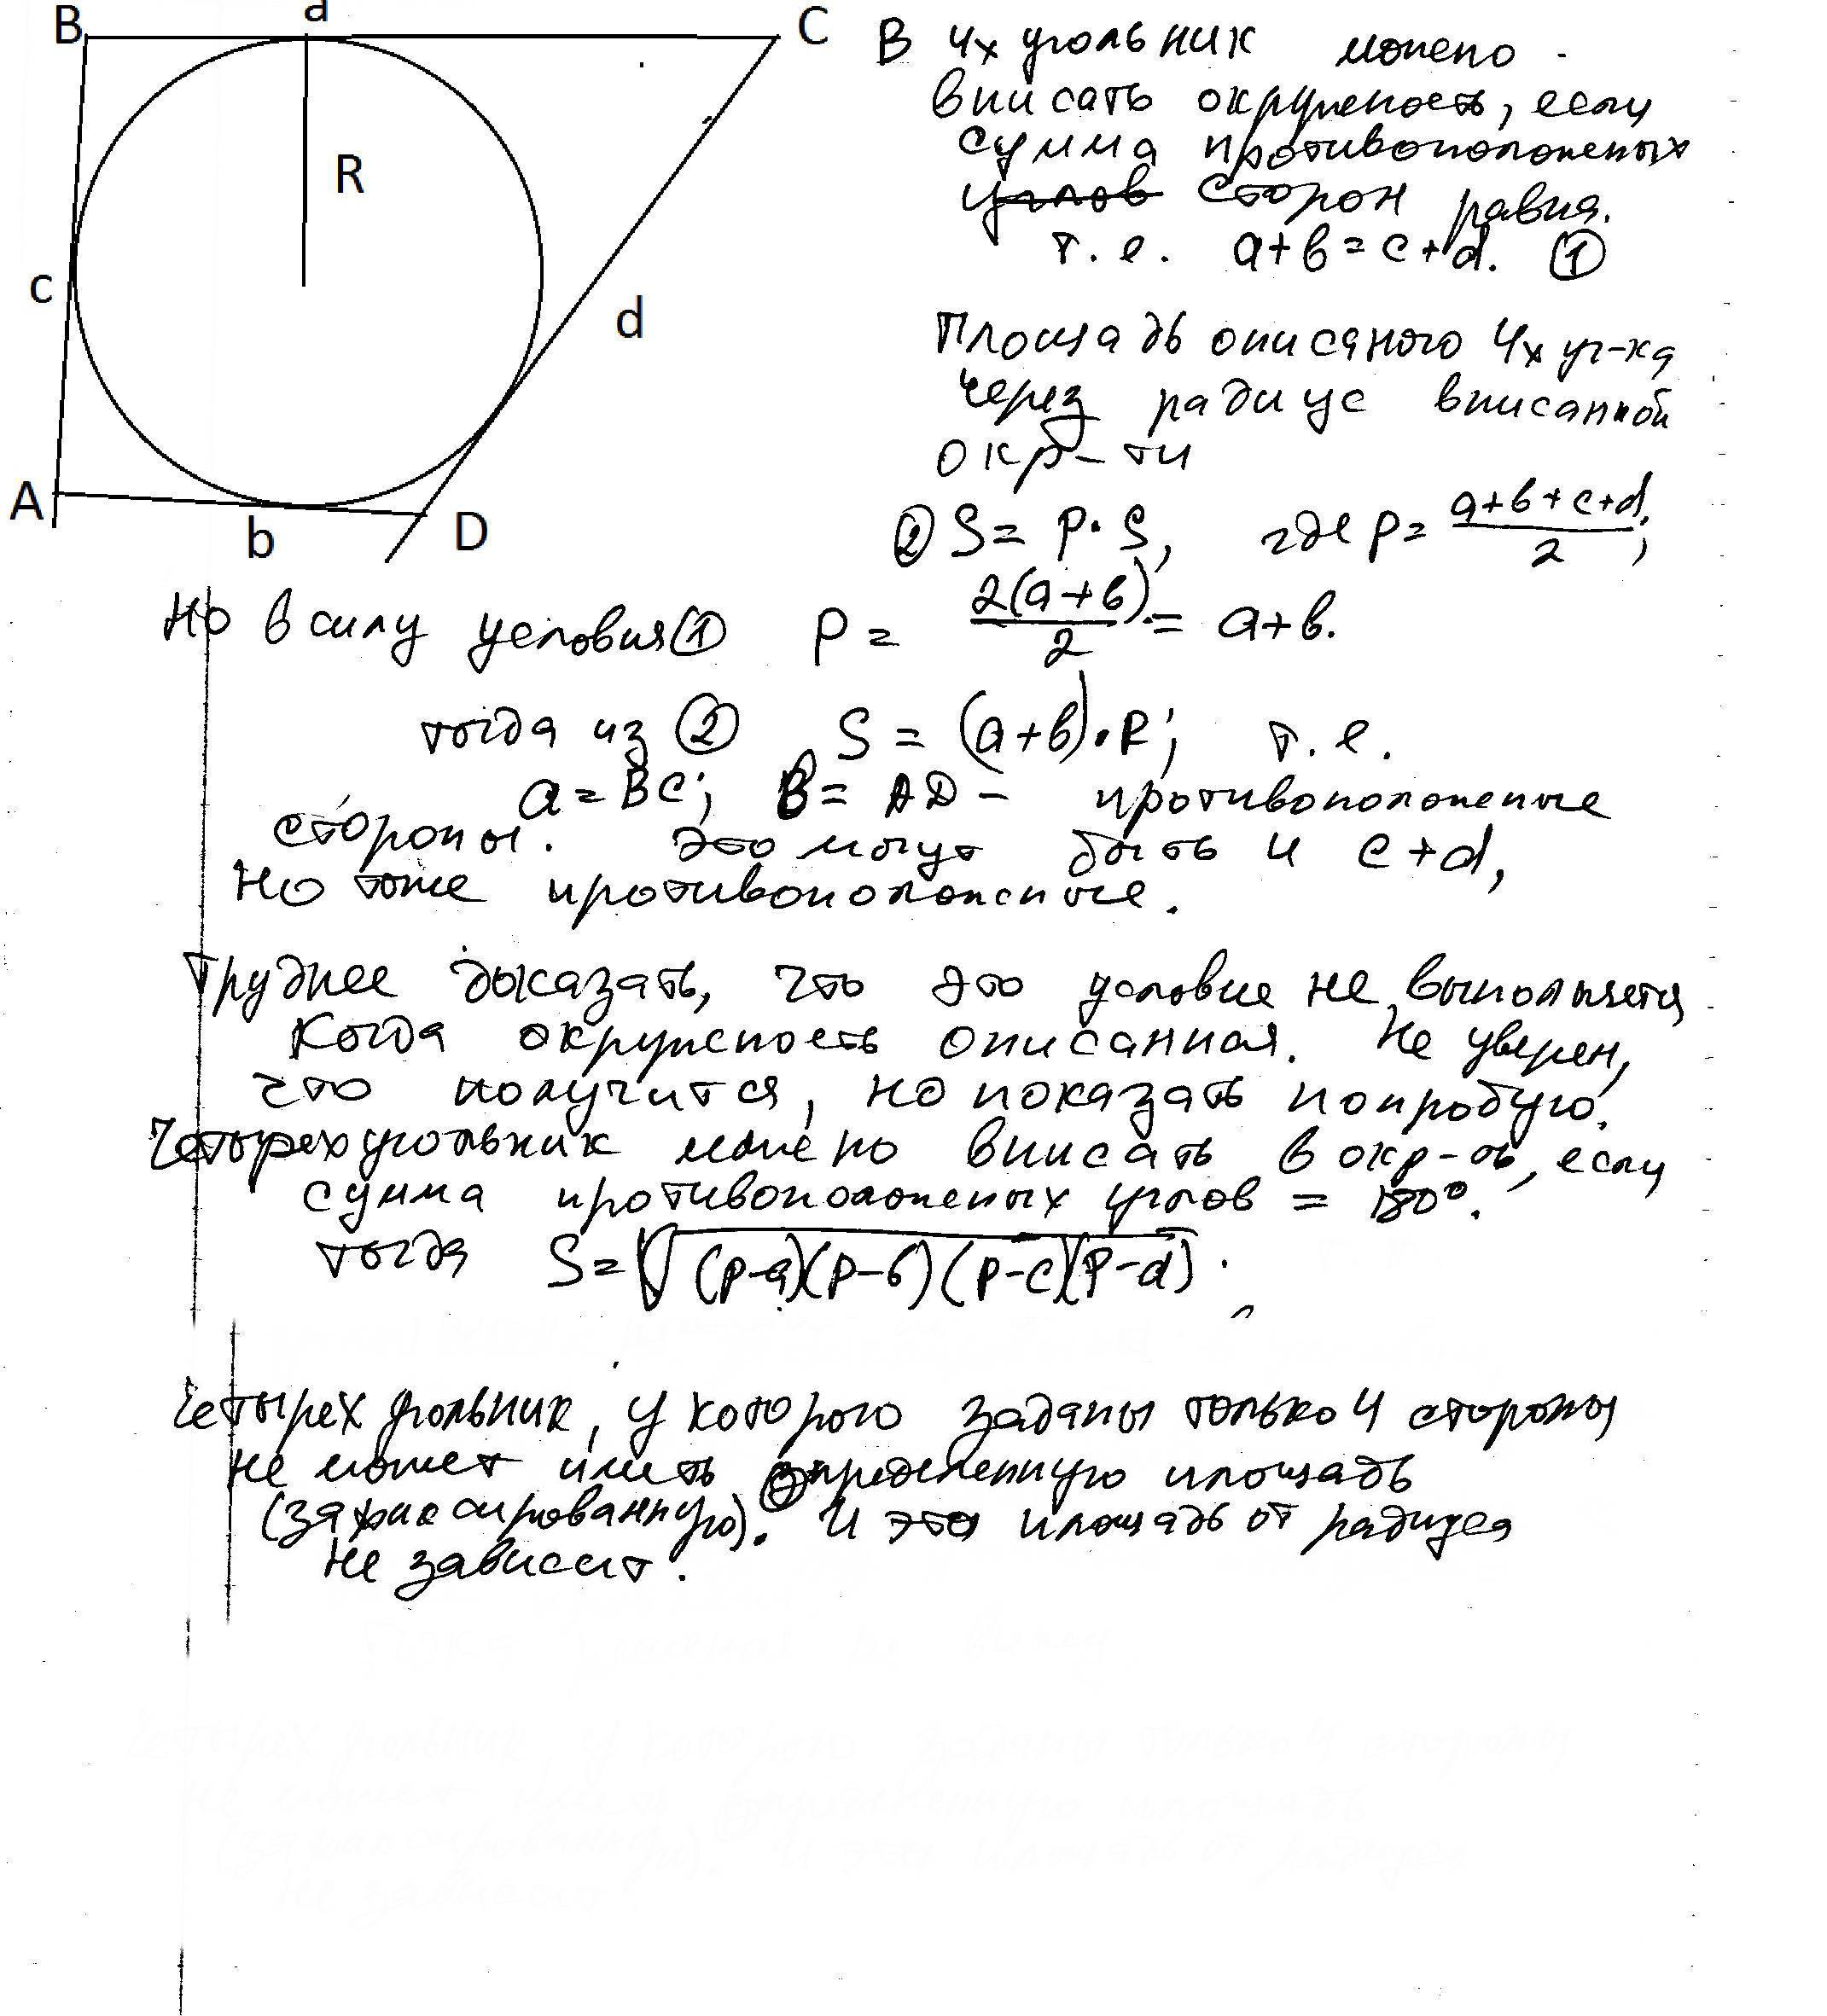 B
a
C
R
c
d
A
b
D
В 4х угольник можно
вписать окружность, если
сумма противоположных
углов сторон равна.
т.е. a+b=c+d. ①
Площадь описаного 4х уг-ка
через радиус вписанной
окр-ти
② S= p·S, где p= (a+b+c+d)/2;
Но в силу условия ① P= 2(a+b)/2 = a+b.
тогда из ② S = (a+b)·R; т.е.
a=BC; B= AD - противоположные
стороны. Это могут быть и c+d,
но тоже противоположные.
Труднее доказать, что это условие не выполняется
когда окружность описанная. Не уверен,
что получится, но показать попробую.
Четырехугольник можно вписать в окр-ть, если
сумма противоположных углов = 180°.
тогда S=√(p-a)(p-b)(p-c)(p-d).
Четырехугольник, у которого заданы только 4 стороны
не может иметь определенную площадь
(зафиксированную). И эта площадь от радиуса
не зависит.